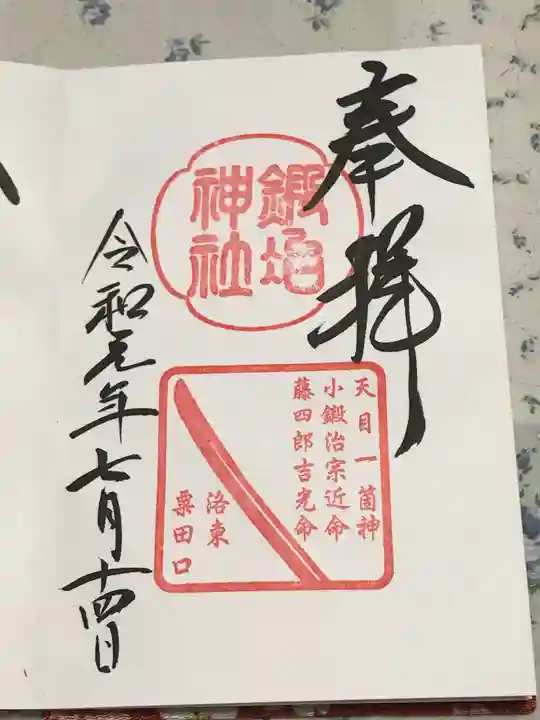 奉拝
鍛冶
神社
天目一箇神
小鍛治宗近命
藤四郎吉光命
洛東
粟田口
令和元年七月十四日